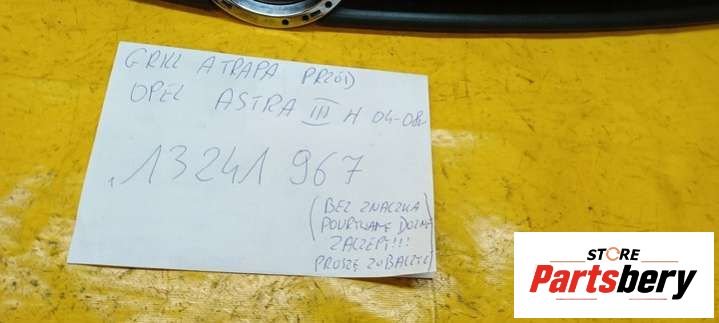 GRILL ATRAPA PRZÓD
OPEL ASTRA III H 04-08r
13241 967
(BEZ ZNACZKA)
POURYWANE DOLNE
ZACZEPY!!!
PROSZĘ ZOBACZYĆ
STORE
Partsbery